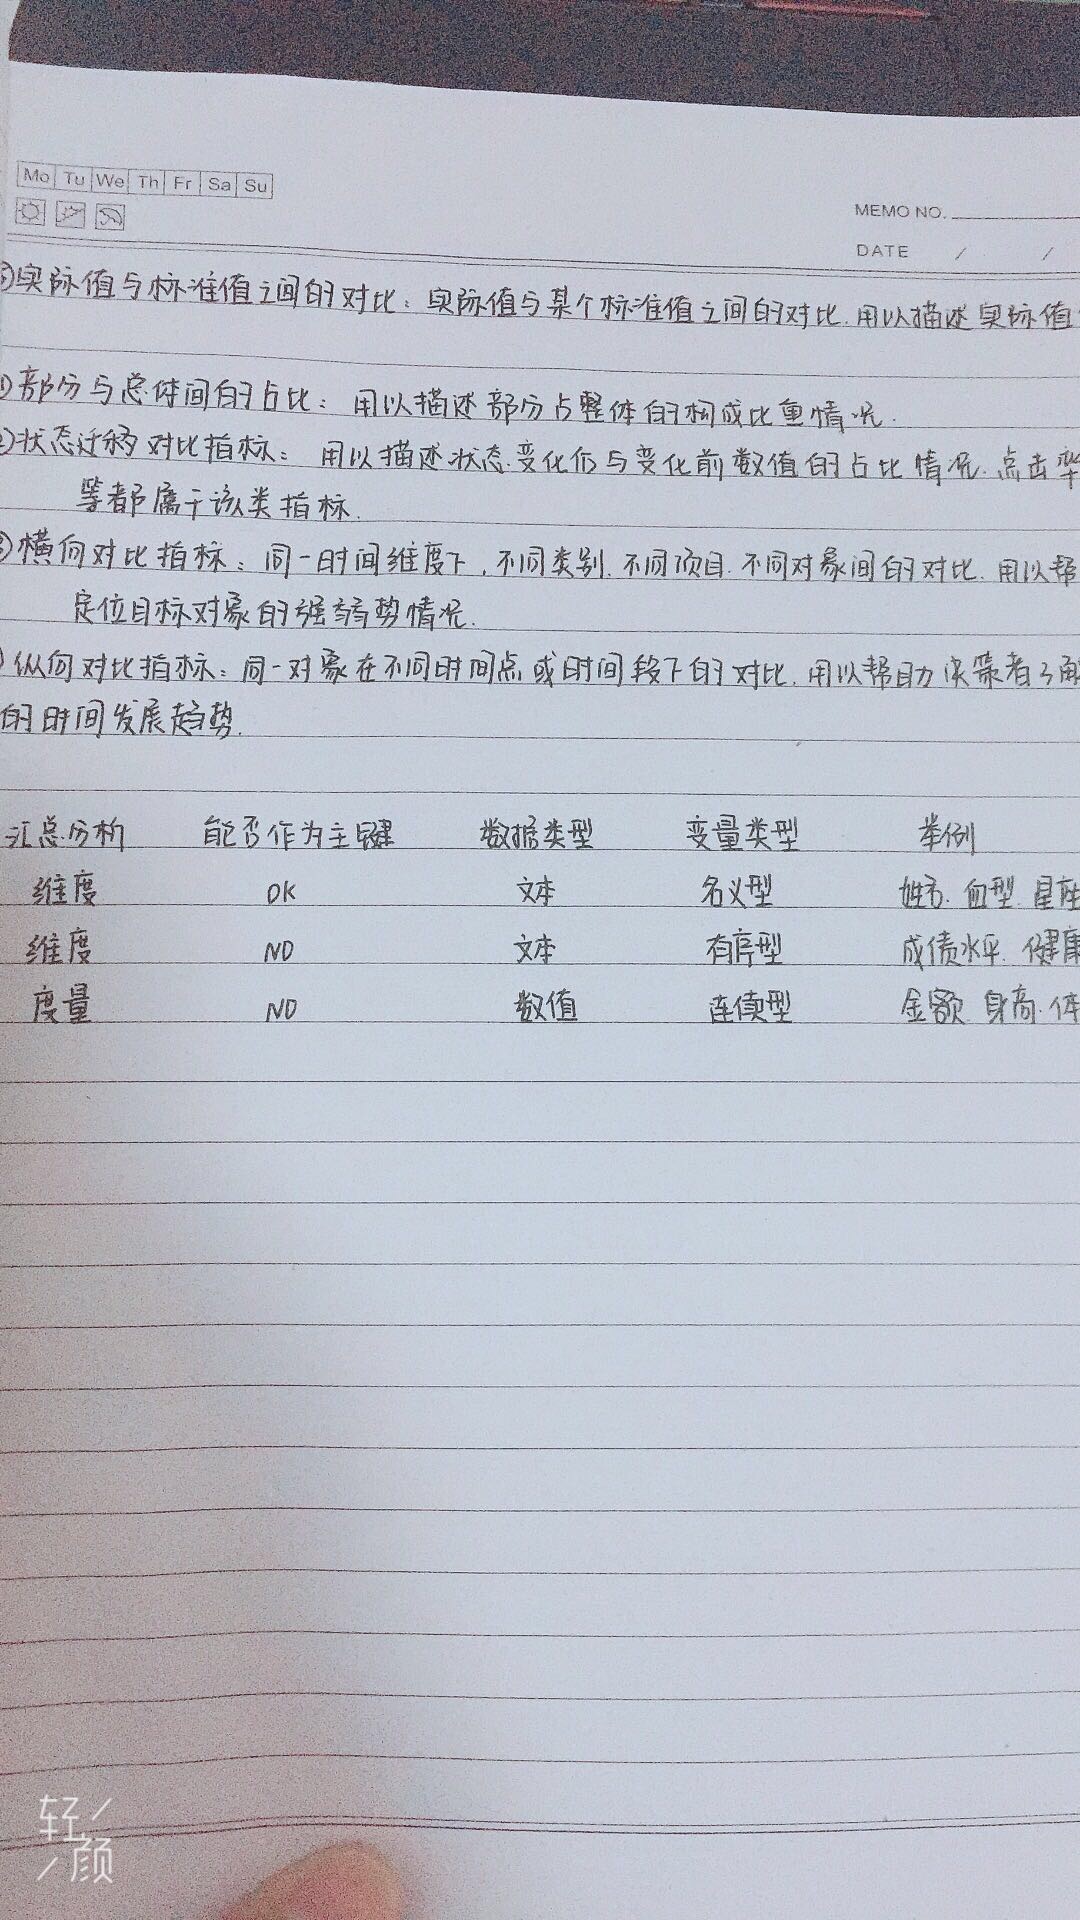 Mo Tu We Th Fr Sa Su
MEMO NO.
DATE / /
实际值与标准值之间的对比：实际值与某个标准值之间的对比.用以描述实际值
部分与总体间的占比：用以描述部分占整体的构成比重情况.
状态迁移对比指标：用以描述状态变化后与变化前数值的占比情况.点击率
等都属于该类指标.
横向对比指标：同一时间维度下,不同类别.不同项目.不同对象间的对比.用以帮
定位目标对象的强弱势情况.
纵向对比指标：同一对象在不同时间点或时间段下的对比.用以帮助决策者了解
的时间发展趋势.
汇总分析 能否作为主键 数据类型 变量类型 举例
维度 OK 文本 名义型 姓名.血型.星座
维度 NO 文本 有序型 成绩水平.健康
度量 NO 数值 连续型 金额.身高.体
轻颜